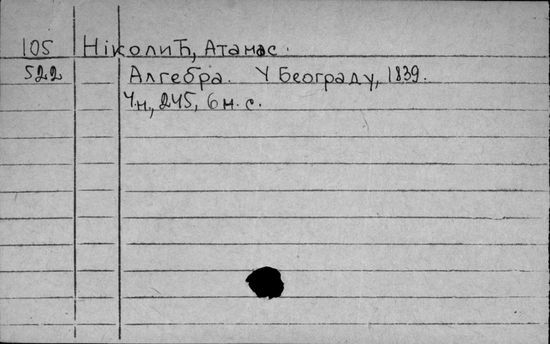 105 Ніколић, Атанас.
522 Алгебра. У Београду, 1839.
4н, 245, 6 н. с.